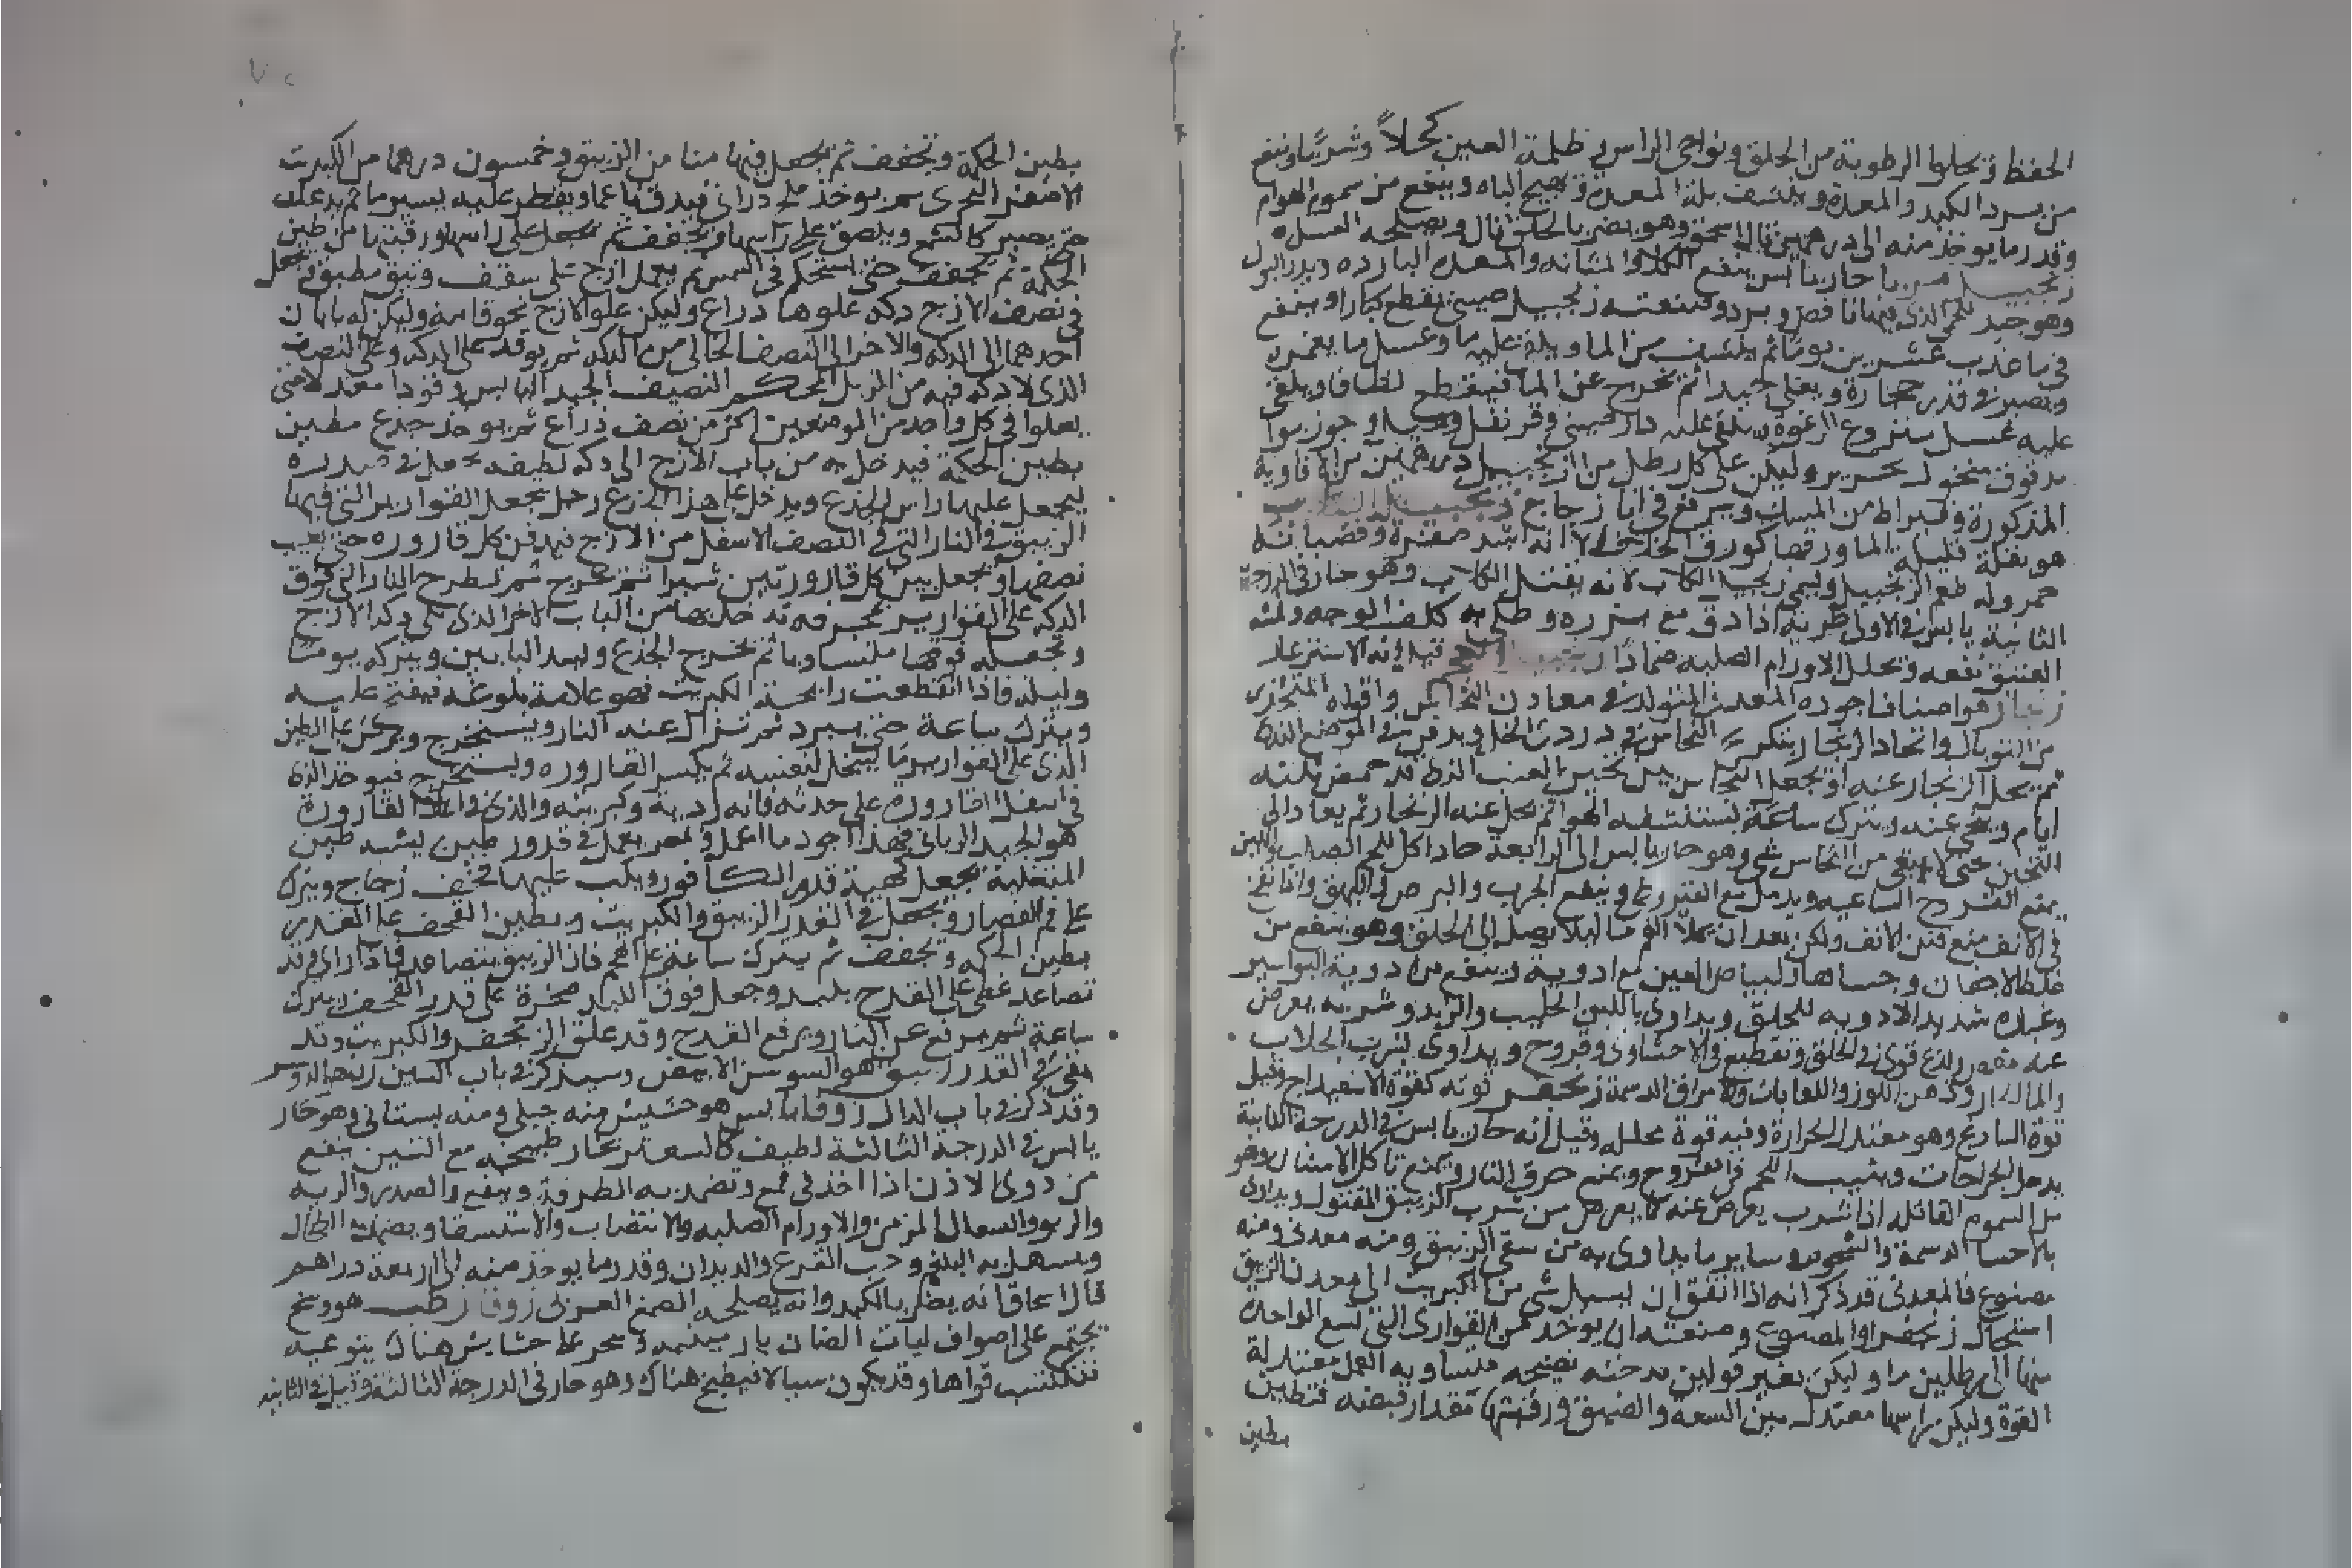 الحفظ ويجلوا الرطوبة من الحلق ونواحى الراس وظلمة العين كحلاً وشرباً وينفع
من برد الكبد والمعدة وينشف بلة المعدة ويهيج الباه وينفع من سموم الهوام
وقدر ما يوخذ منه الى درهمين قال اسحق وهو يضر بالحلق قال ويصلحه العسل
زنجبيل مربا حار يابس ينفع الكلا والمثانه والمعده البارده ويدر البول
وهو جيد وصنعته زنجبيل صينى يقطع كبارا وينقع
فى ما عذب عشرين يوما ثم ينشف من الما ويلقى عليه ما وعسل ما يغمره
ويصير فى قدر حجارة ويغلى جيدا ثم يخرج عن الما فيقطع لطافا ويلقى
عليه عسل منزوع الرغوة ويلقى عليه دارصينى وقرنفل وجوزبوا
مدقوق منخول بحرير وليكن على كل رطل من الزنجبيل درهمين من الافاويه
المذكورة وقيراط من المسك ويرفع فى انا زجاج زنجبيل الكلاب
هو بقلة قليلة الما ورقها كورق الخلاف الا انه اشد صفرة وقضبانه
حمر وله طعم الزنجبيل وليمى زنجبيل الكلاب لانه يقتل الكلاب وهو حار فى الدرجة
الثانية يابس فى الاولى طريه اذا دق مع بزره وطلى به كلف الوجه ولمثه
العتيق نفعه ويحلل الاورام الصلبه ضمادا زنجبيل العجم قيل انه الاشترغار
زنجار هو اصناف اجوده المعدنى المتولد فى معادن النحاس واقواه المتخذ
من التوبال واتحاد الزنجار بتكريج النحاس فى دردى الخل ويدفن فى الموضع الندى
ثم يحل الزنجار عنه او يجعل النحاس بين ثجير العنب الذى قد حمض ثلثه
ايام وينحى عنه ويترك ساعة يستنشقه الهوا ثم يحل عنه الزنجار ثم يعاد الى
الثجير حتى لا يبقى من النحاس شى وهو حار يابس الى الرابعة حاد اكال للحم الصلب واللين
يمنع القروح الساعيه ويدمل مع القيروطى وينفع الجرب والبرص والبهق واذا نفخ
فى الانف منع نتن الانف ولكن بعد ان يملا الفم ما ليلا يصل الى الحلق وهو ينفع من
غلظ الاجفان وجساها ولبياض العين مع ادوية وينفع من ادوية البواسير
وغيره شديد الادويه للحلق ويداوى باللبن الحليب والزبد وشربه يعرض
عنه مغص ولذع قوى فى الحلق وتقطيع فى الاحشا وقى وقروح ويداوى بشرب الجلاب
ودهن اللوز واللعابات والامراق الدسمة زنجفر قوته كقوة الاسفيداج وقيل
قوة السادنج وهو معتدل الحرارة وفيه قوة محلله وقيل انه حار يابس فى الدرجة الثانية
يدمل الجراحات وينبت اللحم فى القروح ويمنع حرق النار ويمنع تاكل الاسنان وهو
من السموم القاتله اذا شرب يعرض عنه ما يعرض من شرب الزيبق المقتول ويداوى
بالاحسا الدسمة والشحوم وساير ما يداوى به من سقى الزيبق ومنه معدنى ومنه
مصنوع فالمعدنى قد ذكر انه اذا اتفق ان يسيل شى من الكبريت الى معدن الزيبق
استحال زنجفرا والمصنوع وصنعته ان يوخذ من القوارير التى تسع الواحده
منها الى رطلين ما وليكن بغير فولين مدخنه نضيجه متساويه العمل معتدلة
القوة وليكن راسها معتدل بين السعة والضيق ورقبتها مقدار قبضه فتطين
بطين
بطين الحكمة وتجفف ثم يجعل فيها منا من الزيبق وخمسون درهما من الكبريت
الاصفر البحرى ثم يوخذ ملح درانى فيدق ناعما ويقطر عليه يسير ما ثم يدعك
حتى يصير كالشمع ويلصق على راسها ويجفف ثم يجعل على راسها ورقبتها من طين
الحكمة ثم يجفف حتى استحكم فى الشمس ثم يعمل ازج على سقف وثيق مطبق ويجعل
فى نصف الازج دكه علوها ذراع وليكن علو الازج نحو قامه وليكن له بابان
احدهما الى الدكه والاخر الى النصف الخالى من الدكه ثم يوقد على الدكه وعلى النصف
الذى لا دكه فيه من الزبل المحكم النصيف الجيد اليابس وقودا معتدلا حتى
يعلوا فى كل واحد من الموضعين اكثر من نصف ذراع ثم يوخذ جذع مطين
بطين الحكمة فيدخل به من باب الازج الى دكه لطيفه تعمل فى صدره
ليجعل عليها راس الجذع ويدخل على هذا الجذع رجل يجعل القوارير التى فيها
الزيبق فى النار التى فى النصف الاسفل من الازج فيدفن كل قاروره حتى يغيب
نصفها ويجعل بين كل قارورتين شبرا ثم يخرج ثم تطرح النار التى فوق
الدكه على القوارير بمجرفه تدخلها من الباب الاخر الذى على دكه الازج
وتجعله فوقها متساويا ثم تخرج الجذع وليسد البابين ويتركه يوما
وليله فاذا انقطعت رايحة الكبريت فهو علامة بلوغه فيفتح عليه
ويترك ساعة حتى يبرد ثم تزال عنه النار ويستخرج ويركز على الطين
الذى على القوارير ما يبتحل لنفسه ثم يكسر القاروره ويستخرج فيوخذ الذى
فى اسفل القاروره على حدته فانه ردية وكبريته والذى فى اعلا القارورة
هو الجيد الربانى فهذا اجود ما اعمل وقد يعمل فى قدور طين يشبه طين
المتغلبة يجعل كهية قدور الكافور ويكب عليها قحف زجاج ويترك
على فم القصار ويجعل فى القدر الزيبق والكبريت ويطين القحف على القدر
بطين الحكمه ويجفف ثم يترك ساعة على الجمر فان الزيبق يتصاعد فاذا راى قد
تصاعد غطى على القدح بلبد وجعل فوق اللبد صخرة على قدر القحف ويترك
ساعة ثم يرفع عن النار ويرفع القدح وقد علق الزنجفر والكبريت وقد
بقى فى القدر زنبق هو السوسن الابيض وسيذكر فى باب السين زنبوالدوسر
وقد ذكر فى باب الدال زوفا يابس هو حشيش منه جبلى ومنه بستانى وهو حار
يابس فى الدرجة الثالثة لطيف كالسعتر بخار طبيخه مع التين ينفع
من دوى الاذن اذا اخذ فى قمع وتضمد به الطرفة وينفع الصدر والريه
والربو والسعال المزمن والاورام الصلبه والانتصاب والاستسقا ويضمد الطحال
ويسهل به البلغم وحب القرع والديدان وقدر ما يوخذ منه الى اربعة دراهم
قال اسحاق انه يضر بالكبد وانه يصلحه الصمغ العربى زوفا رطب هو وسخ
يجتمع على اصواف ليات الضان بارمينيه وتنجر على حشايش هناك يتوعيه
فتكتسب قواها وقد يكون سيالا فيطبخ هناك وهو حار فى الدرجة الثالثة وقيل فى الثانيه